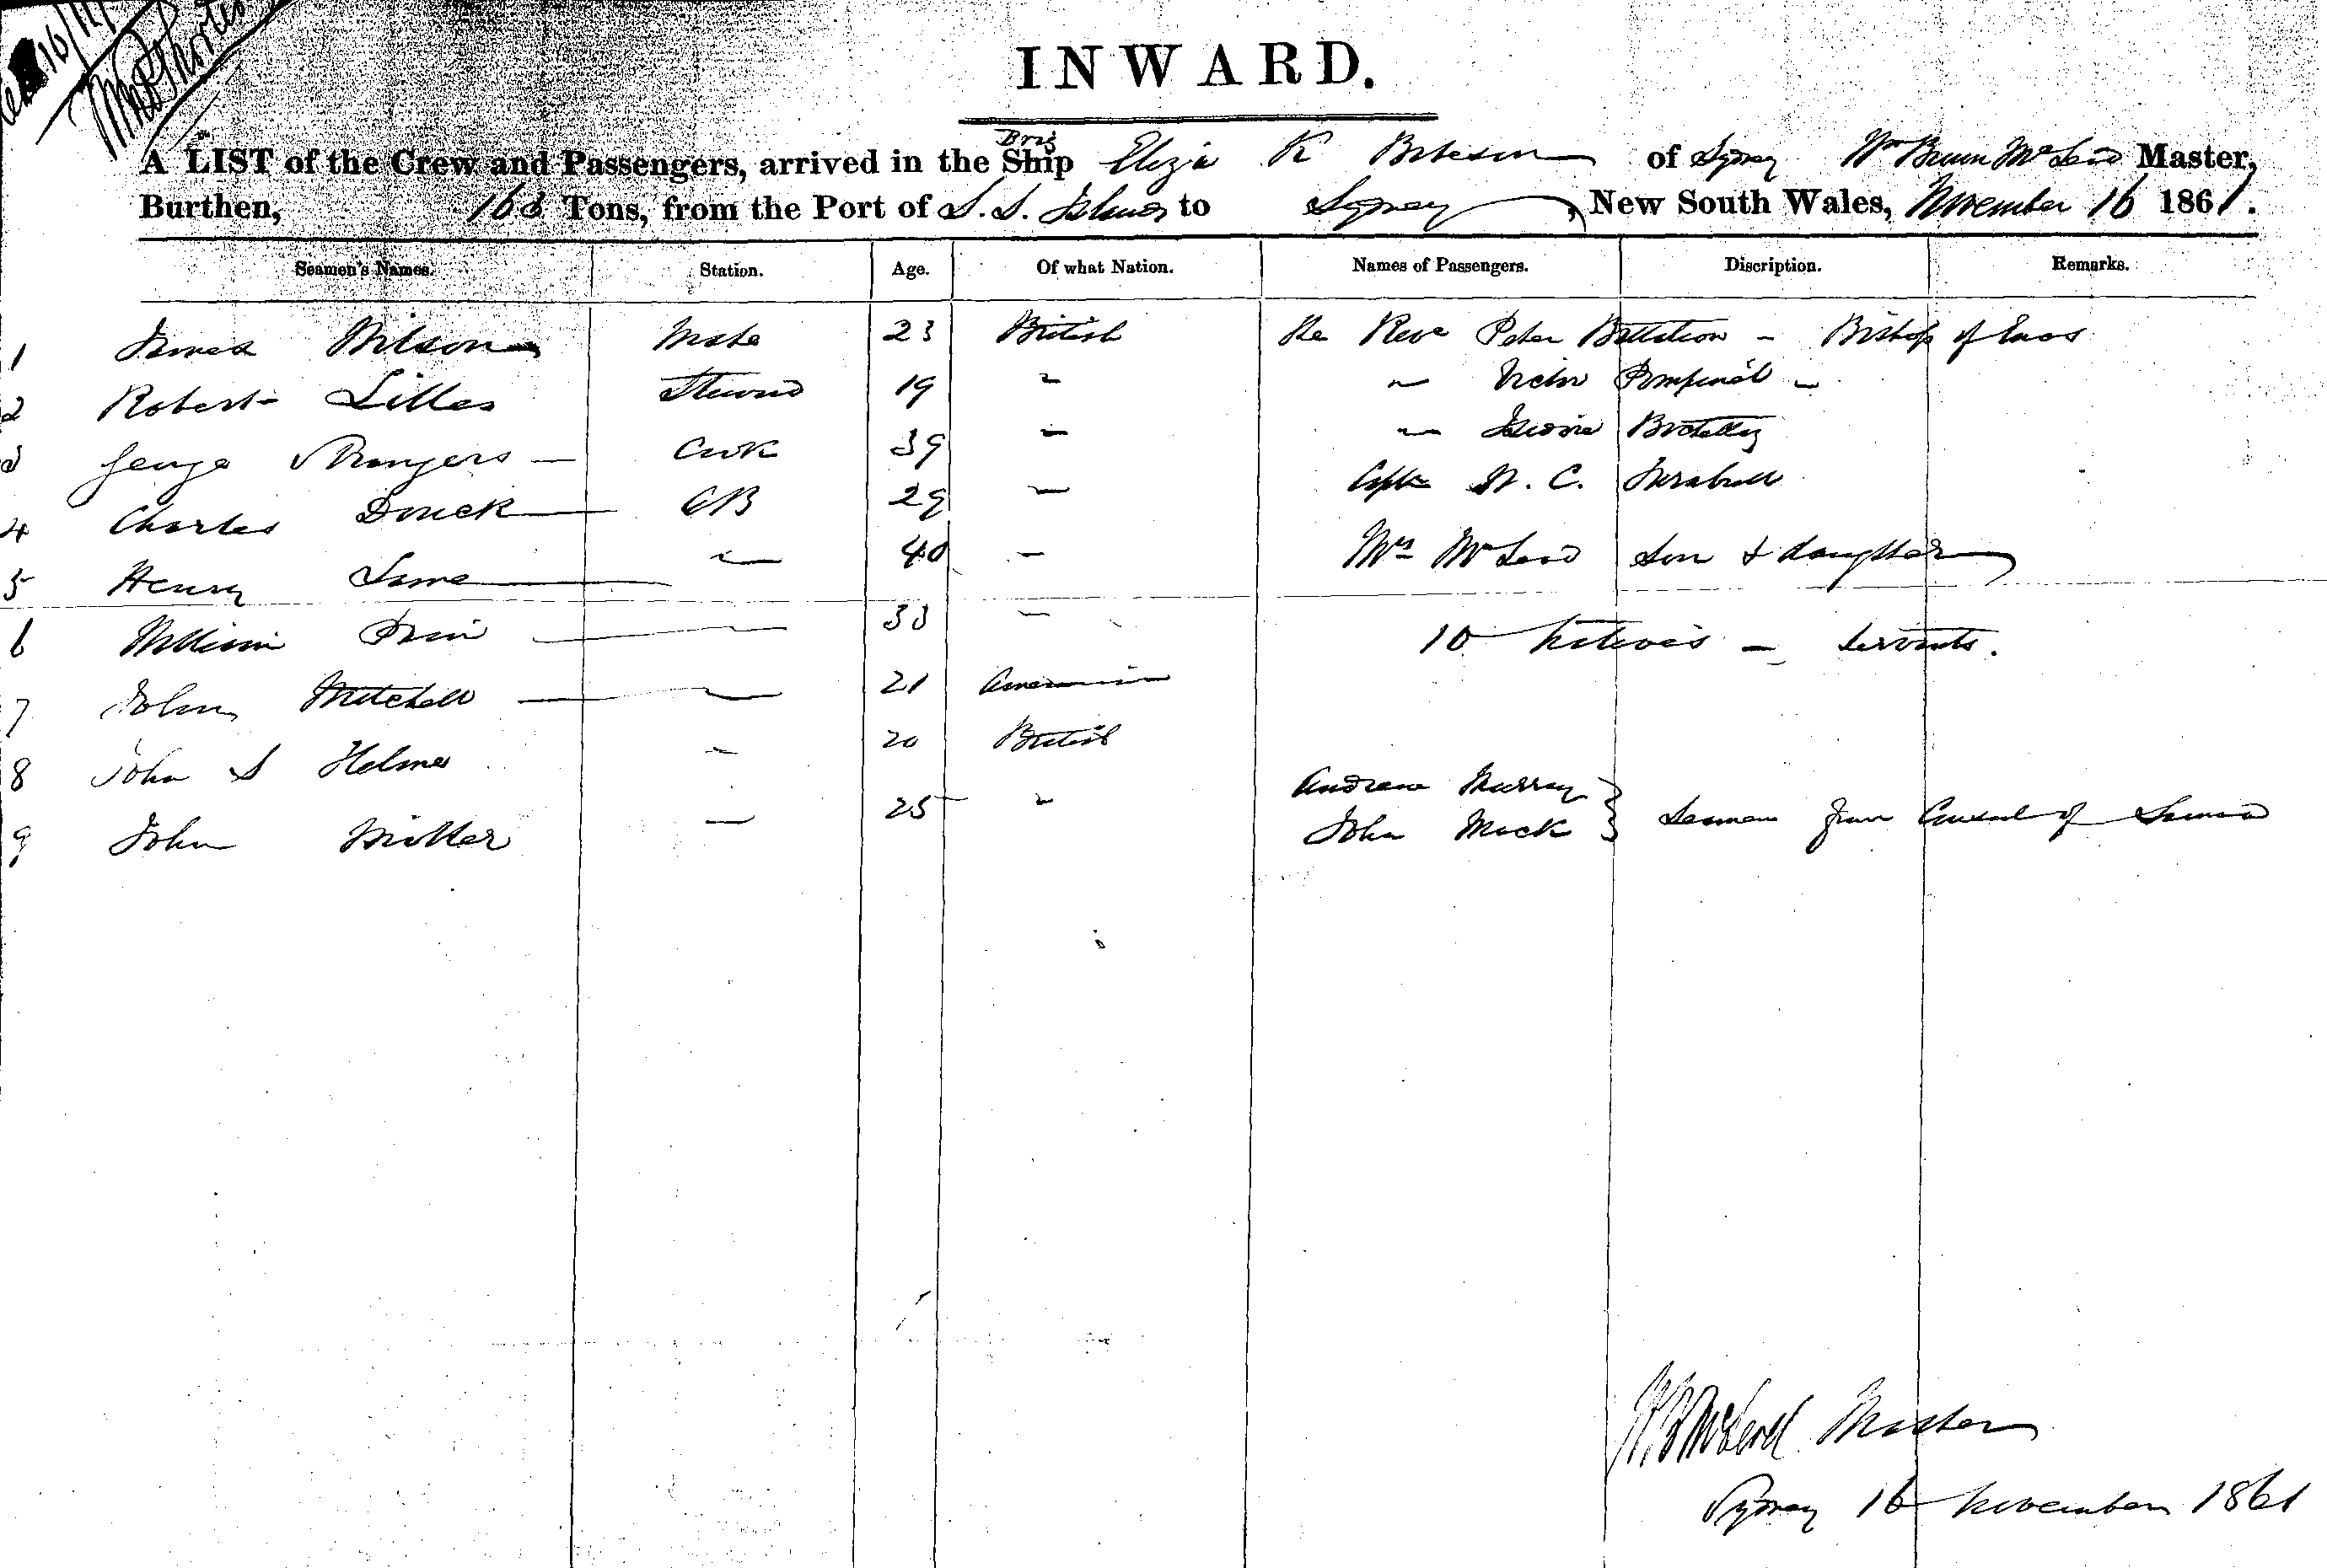 16/11
INWARD.
Brig
A LIST of the Crew and Passengers, arrived in the Ship Eliza K Bateson of Sydney Wm Brown McLeod Master,
Burthen, 163 Tons, from the Port of S. S. Islands to Sydney, New South Wales, November 16 1861.
Seamen's Names. Station. Age. Of what Nation. Names of Passengers. Discription. Remarks.
1 James Wilson Mate 23 British The Revd Peter Battalion - Bishop of Enos
2 Robert Lilles Steward 19 " " Victor
3 George Strangers Cook 39 " "
4 Charles AB 29 " Capt W. C.
5 Henry " 40 " Mrs McLeod Son & daughter
6 William " 33 " 10 Natives - Servants.
7 John Mitchell " 21 American
8 John S Holmes " 20 British
9 John Miller " 25 " Andrew Murray
John Mack } Seamen from Consul of Samoa
W. B McLeod Master
Sydney 16 November 1861